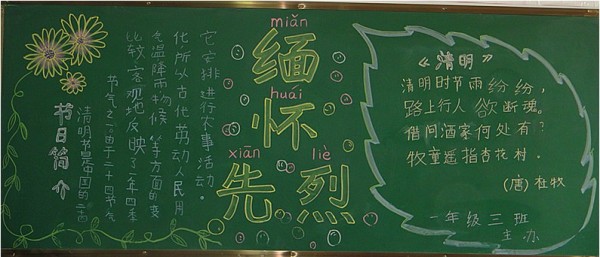 节日简介
清明节是中国的二十四
节气之一。由于二十四节气
比较客观地反映了一年四季
气温降雨物候等方面的变
化所以古代劳动人民用
它安排进行农事活动。
miǎn
缅
huái
怀
xiān liè
先烈
《清明》
清明时节雨纷纷，
路上行人欲断魂。
借问酒家何处有？
牧童遥指杏花村。
(唐) 杜牧
一年级三班
主办